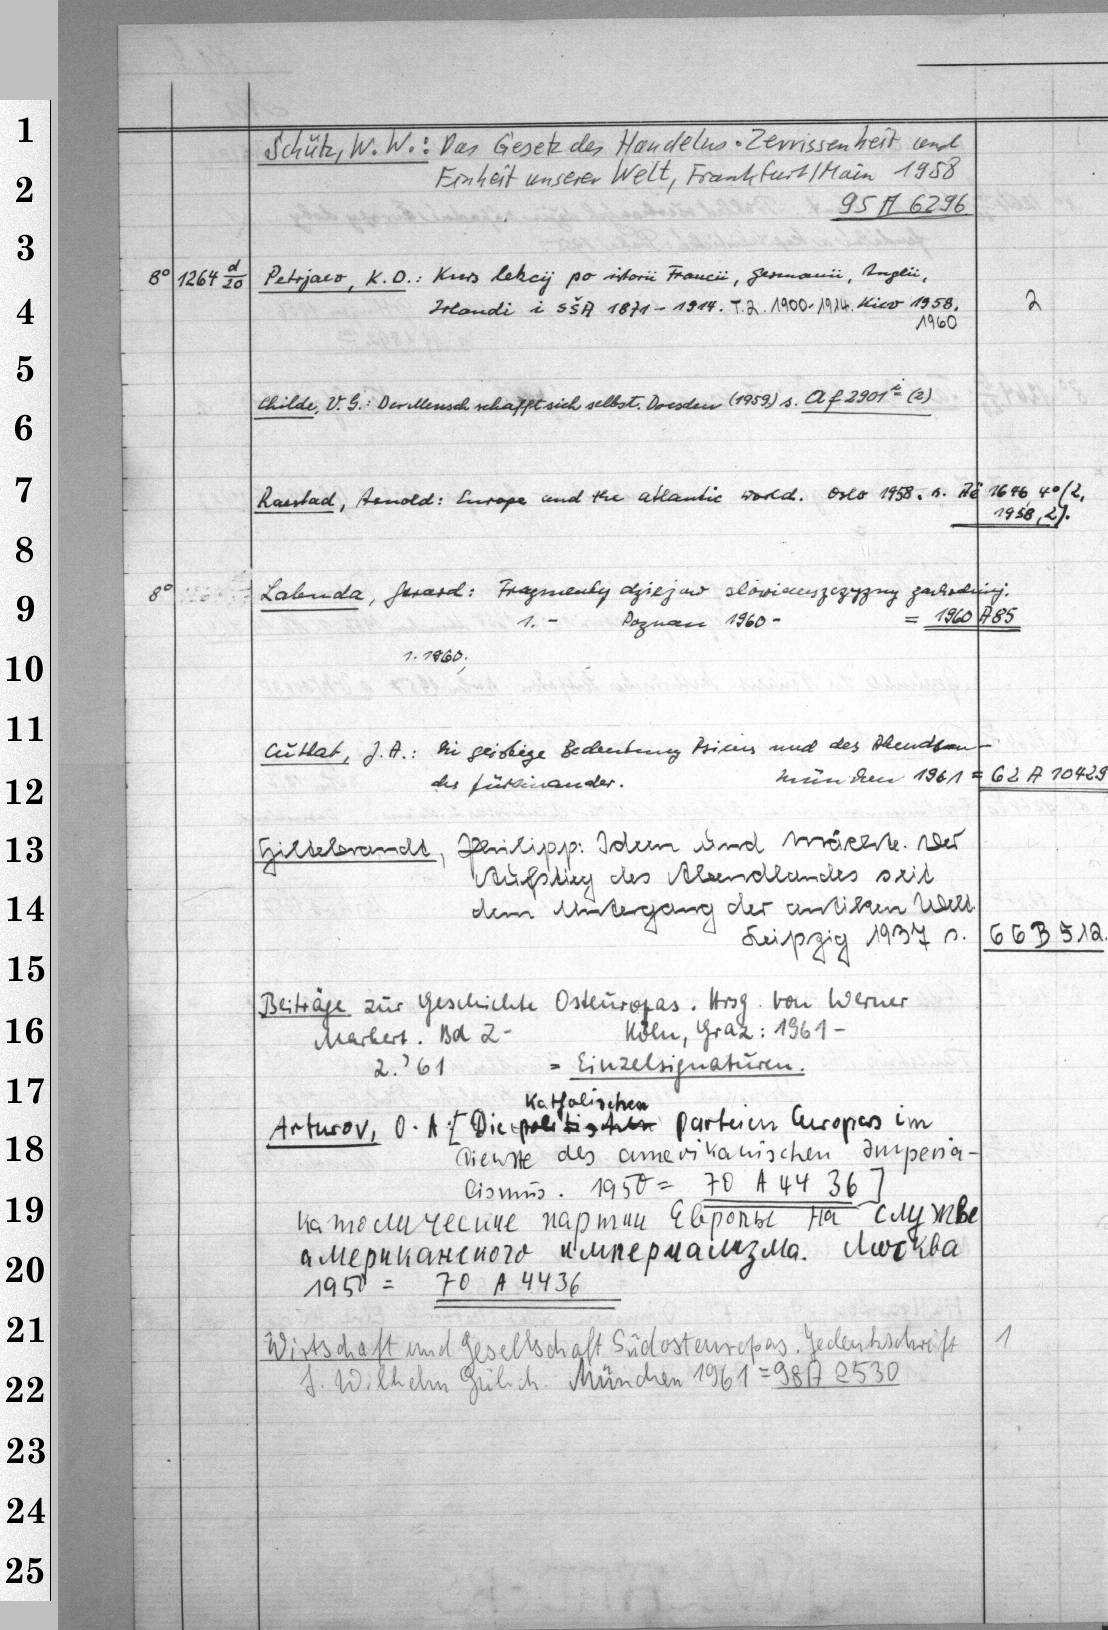 1
2
3
4
5
6
7
8
9
10
11
12
13
14
15
16
17
18
19
20
21
22
23
24
25
Schütz, W. W.: Das Gesetz des Handelns. Zerrissenheit und
Einheit unserer Welt, Frankfurt/Main 1958
95 A 6296
8° 1264 d/20 Petrjaev, K. D.: Kurs lekcij po istorii Francii, Germanii, Anglii,
Irlandi i SŠA 1871-1914. T. 2. 1900-1914. Kiev 1958. 2
1960
Childe, V. G.: Der Mensch schafft sich selbst. Dresden (1959) s. Af 2901 (2)
Raestad, Arnold: Europe and the atlantic world. Oslo 1958. s. 1696 4° (2,
1958, 2).
8° Labuda, Gerard: Fragmenty dziejow słowianszczyzny zachodniej.
1. - Poznan 1960 - = 1960 A 85
1. 1960;
Cuttat, J. A.: Die geistige Bedeutung Asiens und des Abendlan-
des füreinander. München 1961 = 62 A 10429
Hiltebrandt, Philipp: Ideen und Mächte. Der
Aufstieg des Abendlandes seit
dem Untergang der antiken Welt.
Leipzig 1937 s. 66 B 512.
Beiträge zur Geschichte Osteuropas. Hrsg. von Werner
Markert. Bd 2- Köln, Graz: 1961 -
2. '61 = Einzelsignaturen.
Katholischen
Arturov, O. A. [Die politischen Parteien Europas im
Dienste des amerikanischen Imperia-
lismus. 1950 = 70 A 44 36]
католические партии Европы на службе
американского империализма. Москва
1950 = 70 A 4436
Wirtschaft und Gesellschaft Südosteuropas. Gedenkschrift 1
f. Wilhelm Gülich. München 1961 = 98 A 2530